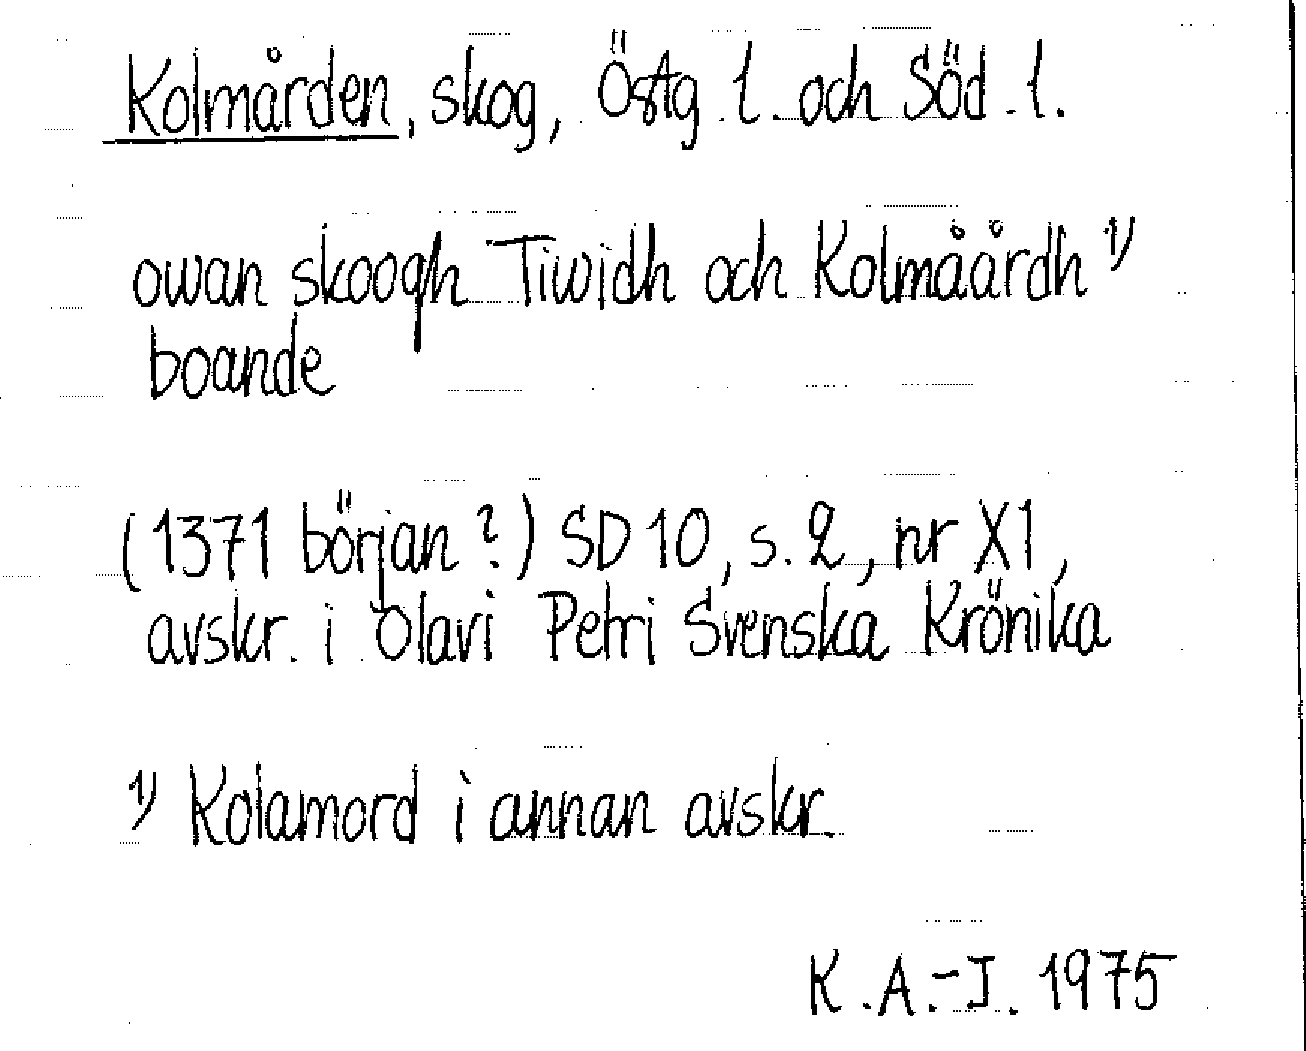 Kolmården, skog, Östg. l. och Söd. l.
owan skoogh Tiwidh och Kolmåårdh 1)
boande
(1371 början?) SD 10, s. 2, nr X1,
avskr. i Olavi Petri Svenska Krönika
1) Kolamord i annan avskr.
K.A.-J. 1975